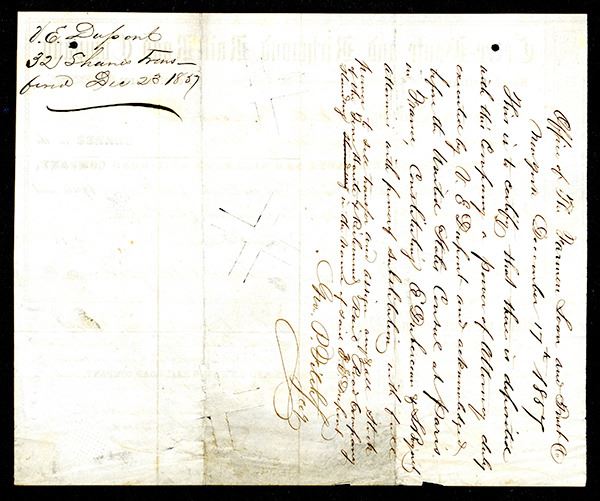 V. E. Dupont
32 Shares Trans-
fered Dec 23 1857
Office of The Farmers Loan and Trust Co
New York December 17th 1857
This is to certify that there is deposited
with this Company a power of Attorney duly
executed by V. E. Dupont and acknowledged
before the United States Consul at Paris
in France, Constituting E Duhucan &
attornies with power of substitution with full
power to sell transfer and assign any Stock
of the Terre Haute & Richmond Rail Road Company
standing in the name of said V. E. Dupont
Geo. P
Secy